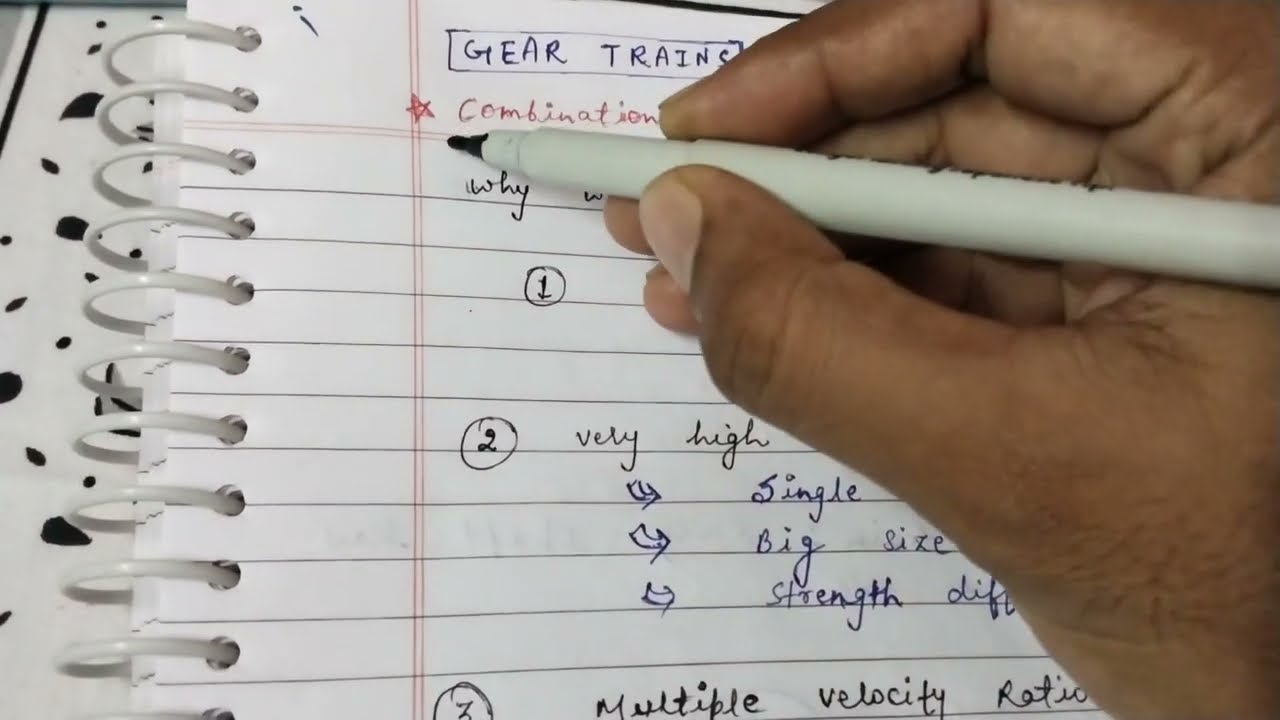 GEAR TRAINS
Combination
why
1
2 very high
Single
Big size
Strength
3 Multiple velocity Ratio